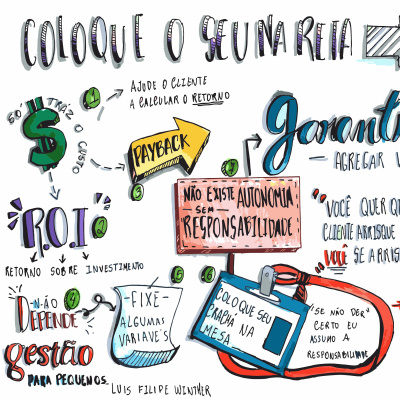 COLOQUE O SEU NA RETA
SÓ TRAZ O CUSTO
$
1
AJUDE O CLIENTE
A CALCULAR O RETORNO
PAYBACK
3
R.O.I
2
RETORNO SOBRE INVESTIMENTO
-NÃO
DEPENDE
4
gestão
PARA PEQUENOS
-FIXE-
ALGUMAS
VARIAVÉ'S
5
6
LUIS FILIPE WINTHER
NÃO EXISTE AUTONOMIA
- SEM -
RESPONSABILIDADE
COLOQUE SEU
CRAPHÁ NA
MESA
Garanti
- AGREGAR V
"VOCÊ QUER Q
CLIENTE ARRISQUE
VOCÊ SE ARRIS
"SE NÃO DER
CERTO EU
ASSUMO A
RESPONSABILIDADE